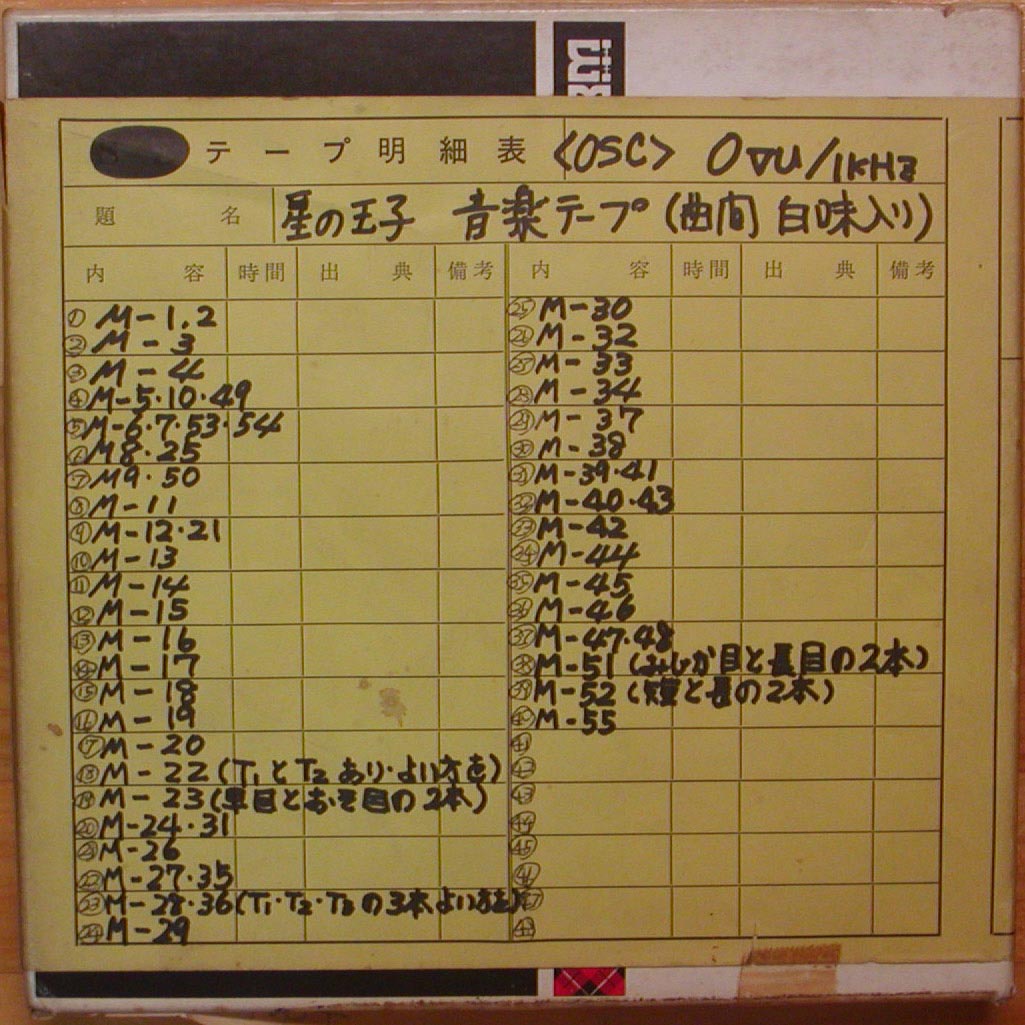 テープ明細表 <OSC> 0VU/1KHz
題名 星の王子 音楽テープ (曲間 白味入り)
内容 時間 出典 備考 内容 時間 出典 備考
① M-1.2
② M-3
③ M-4
④ M-5・10・49
⑤ M-6・7・53・54
⑥ M8・25
⑦ M9・50
⑧ M-11
⑨ M-12・21
⑩ M-13
⑪ M-14
⑫ M-15
⑬ M-16
⑭ M-17
⑮ M-18
⑯ M-19
⑰ M-20
⑱ M-22 (T1とT2あり・よい方を)
⑲ M-23 (早目とおそ目の2本)
⑳ M-24・31
㉑ M-26
㉒ M-27・35
㉓ M-28・36 (T1・T2・T3の3本よい方を)
㉔ M-29
㉕ M-30
㉖ M-32
㉗ M-33
㉘ M-34
㉙ M-37
㉚ M-38
㉛ M-39・41
㉜ M-40・43
㉝ M-42
㉞ M-44
㉟ M-45
㊱ M-46
㊲ M-47・48
㊳ M-51 (みじか目と長目の2本)
㊴ M-52 (短と長の2本)
㊵ M-55
㊶
㊷
㊸
㊹
㊺
㊻
㊼
㊽